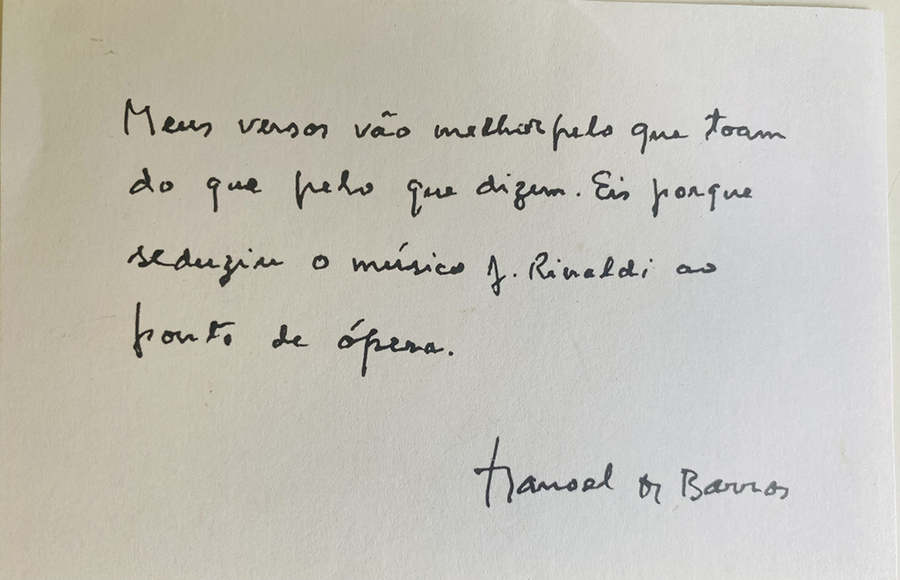 Meus versos vão melhor pelo que toam
do que pelo que dizem. Eis porque
seduziu o músico J. Rinaldi ao
ponto de ópera.
Manoel de Barros